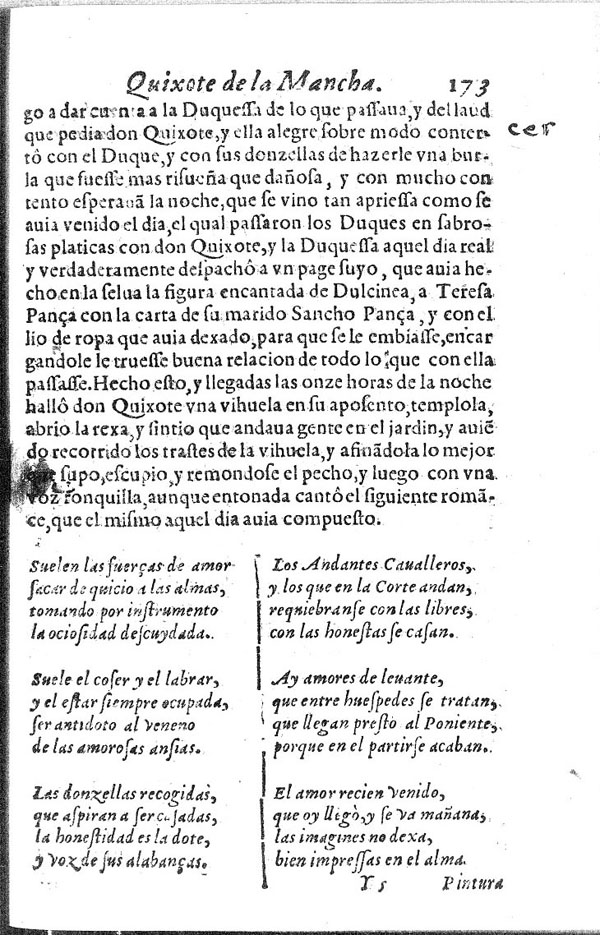 Quixote de la Mancha. 173
go a dar cuenta a la Duquessa de lo que passaua, y del laud
que pedia don Quixote, y ella alegre sobre modo concer-
tô con el Duque, y con sus donzellas de hazerle vna bur-
la que fuesse mas risueña que dañosa, y con mucho con
tento esperauã la noche, que se vino tan apriessa como se
auia venido el dia, el qual passaron los Duques en sabro-
sas platicas con don Quixote, y la Duquessa aquel dia real
y verdaderamente despachô a vn page suyo, que auia he-
cho en la selua la figura encantada de Dulcinea, a Teresa
Pança con la carta de su marido Sancho Pança, y con el
lio de ropa que auia dexado, para que se le embiasse, encar
gandole le truesse buena relacion de todo lo que con ella
passasse. Hecho esto, y llegadas las onze horas de la noche
hallô don Quixote vna vihuela en su aposento, templola,
abrio la rexa, y sintio que andaua gente en el jardin, y auiẽ
do recorrido los trastes de la vihuela, y afinãdola lo mejor
que supo, escupio, y remondose el pecho, y luego con vna
voz ronquilla, aunque entonada cantô el siguiente romã-
ce, que el mismo aquel dia auia compuesto.
cer
Suelen las fuerças de amor
sacar de quicio a las almas,
tomando por instrumento
la ociosidad descuydada.
Suele el coser y el labrar,
y el estar siempre ocupada,
ser antidoto al veneno
de las amorosas ansias.
Las donzellas recogidas,
que aspiran a ser casadas,
la honestidad es la dote,
y voz de sus alabanças.
Los Andantes Caualleros,
y los que en la Corte andan,
requiebranse con las libres,
con las honestas se casan.
Ay amores de leuante,
que entre huespedes se tratan,
que llegan presto al Poniente,
porque en el partirse acaban.
El amor recien venido,
que oy llegò, y se va mañana,
las imagines no dexa,
bien impressas en el alma.
Y 5 Pintura